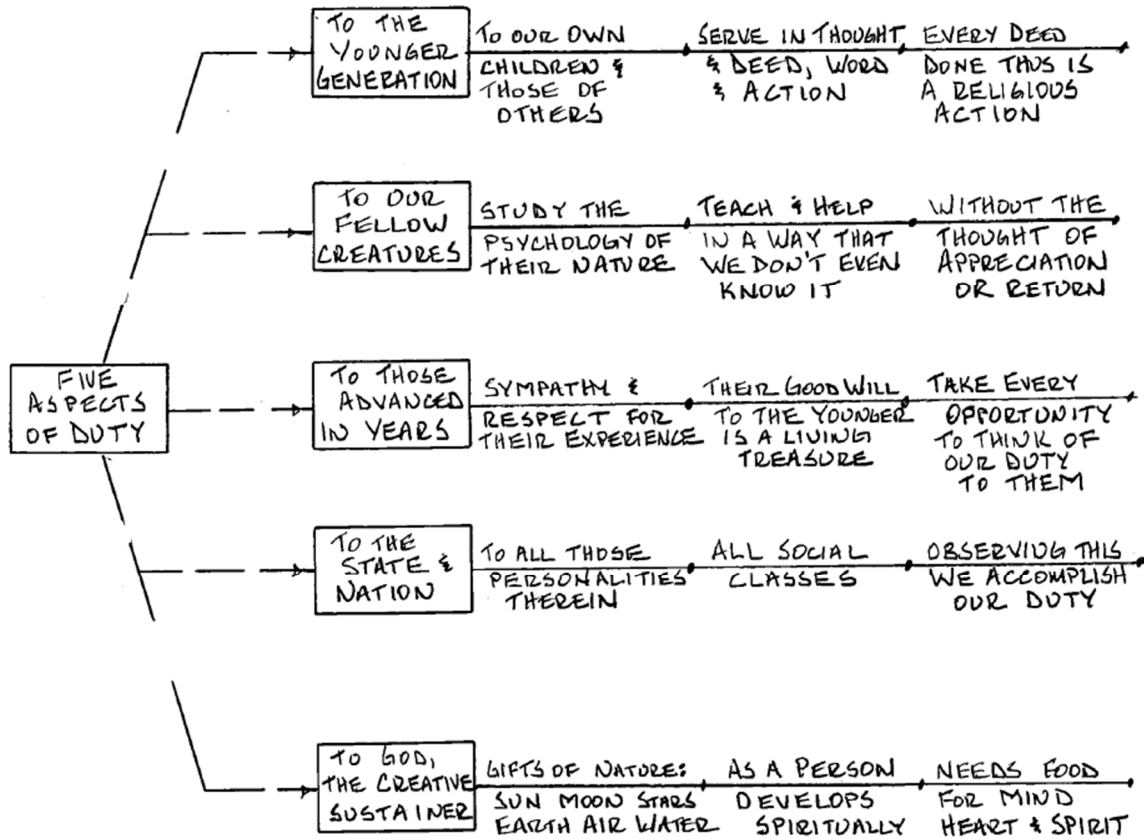 TO THE
YOUNGER
GENERATION
TO OUR OWN
CHILDREN &
THOSE OF
OTHERS
SERVE IN THOUGHT
& DEED, WORD
& ACTION
EVERY DEED
DONE THUS IS
A RELIGIOUS
ACTION
TO OUR
FELLOW
CREATURES
STUDY THE
PSYCHOLOGY OF
THEIR NATURE
TEACH & HELP
IN A WAY THAT
WE DON'T EVEN
KNOW IT
WITHOUT THE
THOUGHT OF
APPRECIATION
OR RETURN
FIVE
ASPECTS
OF DUTY
TO THOSE
ADVANCED
IN YEARS
SYMPATHY &
RESPECT FOR
THEIR EXPERIENCE
THEIR GOOD WILL
TO THE YOUNGER
IS A LIVING
TREASURE
TAKE EVERY
OPPORTUNITY
TO THINK OF
OUR DUTY
TO THEM
TO THE
STATE &
NATION
TO ALL THOSE
PERSONALITIES
THEREIN
ALL SOCIAL
CLASSES
OBSERVING THIS
WE ACCOMPLISH
OUR DUTY
TO GOD,
THE CREATIVE
SUSTAINER
GIFTS OF NATURE:
SUN MOON STARS
EARTH AIR WATER
AS A PERSON
DEVELOPS
SPIRITUALLY
NEEDS FOOD
FOR MIND
HEART & SPIRIT